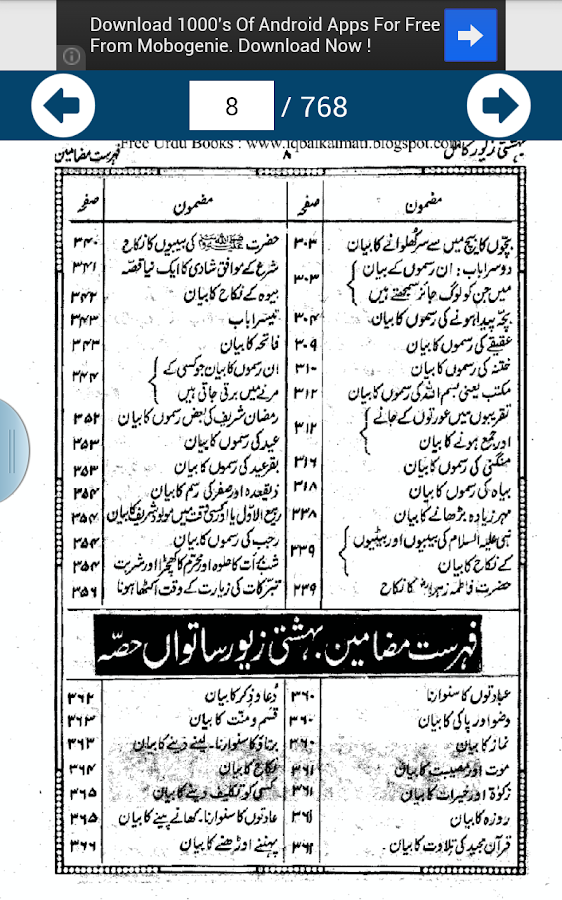 Download 1000's Of Android Apps For Free
From Mobogenie. Download Now !
8 / 768
Free Urdu Books : www.iqbalkalmati.blogspot.com
بہشتی زیور کامل
۸
فہرست مضامین
مضمون
صفحہ
بچوں کا بیچ میں سے سر کھلوانے کا بیان ۳۰۳
دوسرا باب : ان رسموں کے بیان
میں جن کو لوگ جائز سمجھتے ہیں ۳۰۳
بچہ پیدا ہونے کی رسموں کا بیان ۳۰۴
عقیقے کی رسموں کا بیان ۳۰۹
ختنہ کی رسموں کا بیان ۳۱۰
مکتب یعنی بسم اللہ کی رسموں کا بیان ۳۱۲
تقریبوں میں عورتوں کے جانے
اور جمع ہونے کا بیان ۳۱۲
منگنی کی رسموں کا بیان ۳۱۶
بیاہ کی رسموں کا بیان ۳۱۸
مہر زیادہ بڑھانے کا بیان ۳۳۸
نبی علیہ السلام کی بیبیوں اور بیٹیوں
کے نکاح کا بیان ۳۳۹
حضرت فاطمہ زہرا کا نکاح ۳۳۹
مضمون
صفحہ
حضرت ﷺ کی بیبیوں کا نکاح ۳۴۰
شرع کے موافق شادی کا ایک نیا قصہ ۳۴۱
بیوہ کے نکاح کا بیان ۳۴۲
تیسرا باب ۳۴۳
فاتحہ کا بیان ۳۴۳
ان رسموں کا بیان جو کسی کے
مرنے میں برتی جاتی ہیں ۳۴۴
رمضان شریف کی بعض رسموں کا بیان ۳۵۲
عید کی رسموں کا بیان ۳۵۳
بقر عید کی رسموں کا بیان ۳۵۳
ذیقعدہ اور صفر کی رسم کا بیان ۳۵۴
ربیع الاول یا اور کسی وقت میں مولود شریف کا بیان ۳۵۴
رجب کی رسموں کا بیان ۳۵۴
شب برات کا حلوہ اور محرم کا کھچڑا اور شربت ۳۵۴
تبرکات کی زیارت کے وقت اکٹھا ہونا ۳۵۶
فہرست مضامین بہشتی زیور ساتواں حصہ
عبادتوں کا سنوارنا ۳۶۰
وضو اور پاکی کا بیان ۳۶۰
نماز کا بیان ۳۶۰
موت اور مصیبت کا بیان ۳۶۱
زکوٰۃ اور خیرات کا بیان ۳۶۱
روزہ کا بیان ۳۶۱
قرآن مجید کی تلاوت کا بیان ۳۶۱
دعا و ذکر کا بیان ۳۶۲
قسم و منت کا بیان ۳۶۳
برتاؤ کا سنوارنا۔ لینے دینے کا بیان ۳۶۳
نکاح کا بیان ۳۶۴
کسی کو تکلیف دینے کا بیان ۳۶۵
عادتوں کا سنوارنا۔ کھانے پینے کا بیان ۳۶۵
پہننے اوڑھنے کا بیان ۳۶۶